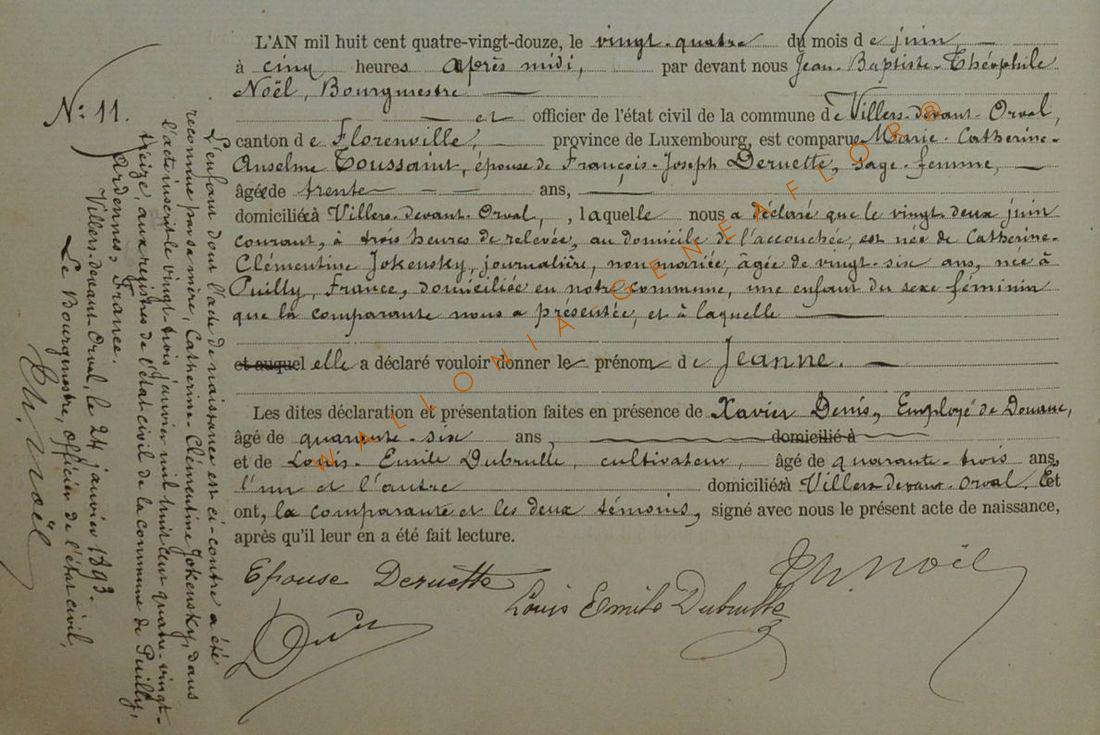 L'AN mil huit cent quatre-vingt-douze, le vingt-quatre du mois de juin
à cinq heures après midi, par devant nous Jean-Baptiste-Théophile
Noël, Bourgmestre
N: 11.
et officier de l'état civil de la commune de Villers-devant-Orval,
canton de Florenville, province de Luxembourg, est comparue Marie-Catherine-
Anselme Toussaint, épouse de François-Joseph Deruette, sage-femme,
âgée de trente ans,
domiciliée à Villers-devant-Orval, laquelle nous a déclaré que le vingt-deux juin
courant, à trois heures de relevée, au domicile de l'accouchée, est née de Catherine-
Clémentine Jokensky, journalière, non mariée, âgée de vingt-six ans, née à
Puilly, France, domiciliée en notre commune, une enfant du sexe féminin
que la comparante nous a présentée, et à laquelle
et auquel elle a déclaré vouloir donner le prénom de Jeanne.
Les dites déclaration et présentation faites en présence de Xavier Denis, Employé de Douane,
âgé de quarante-six ans, domicilié à
et de Louis-Emile Dubrulle, cultivateur, âgé de quarante-trois ans,
l'un et l'autre domiciliés à Villers-devant-Orval. Et
ont, la comparante et les deux témoins, signé avec nous le présent acte de naissance,
après qu'il leur en a été fait lecture.
Epouse Deruette
Louis Emile Dubrulle
Th. Noël
L'enfant dont l'acte de naissance est ci-contre a été
reconnue par sa mère, Catherine-Clémentine Jokensky, dans
l'acte inscrit le vingt-trois janvier mil huit cent quatre-vingt-
treize, aux registres de l'état civil de la commune de Puilly,
Ardennes, France.
Villers-devant-Orval, le 24 janvier 1893.
Le Bourgmestre, officier de l'état civil,
Th. Noël
WALLONIA-GENEAFLOR®